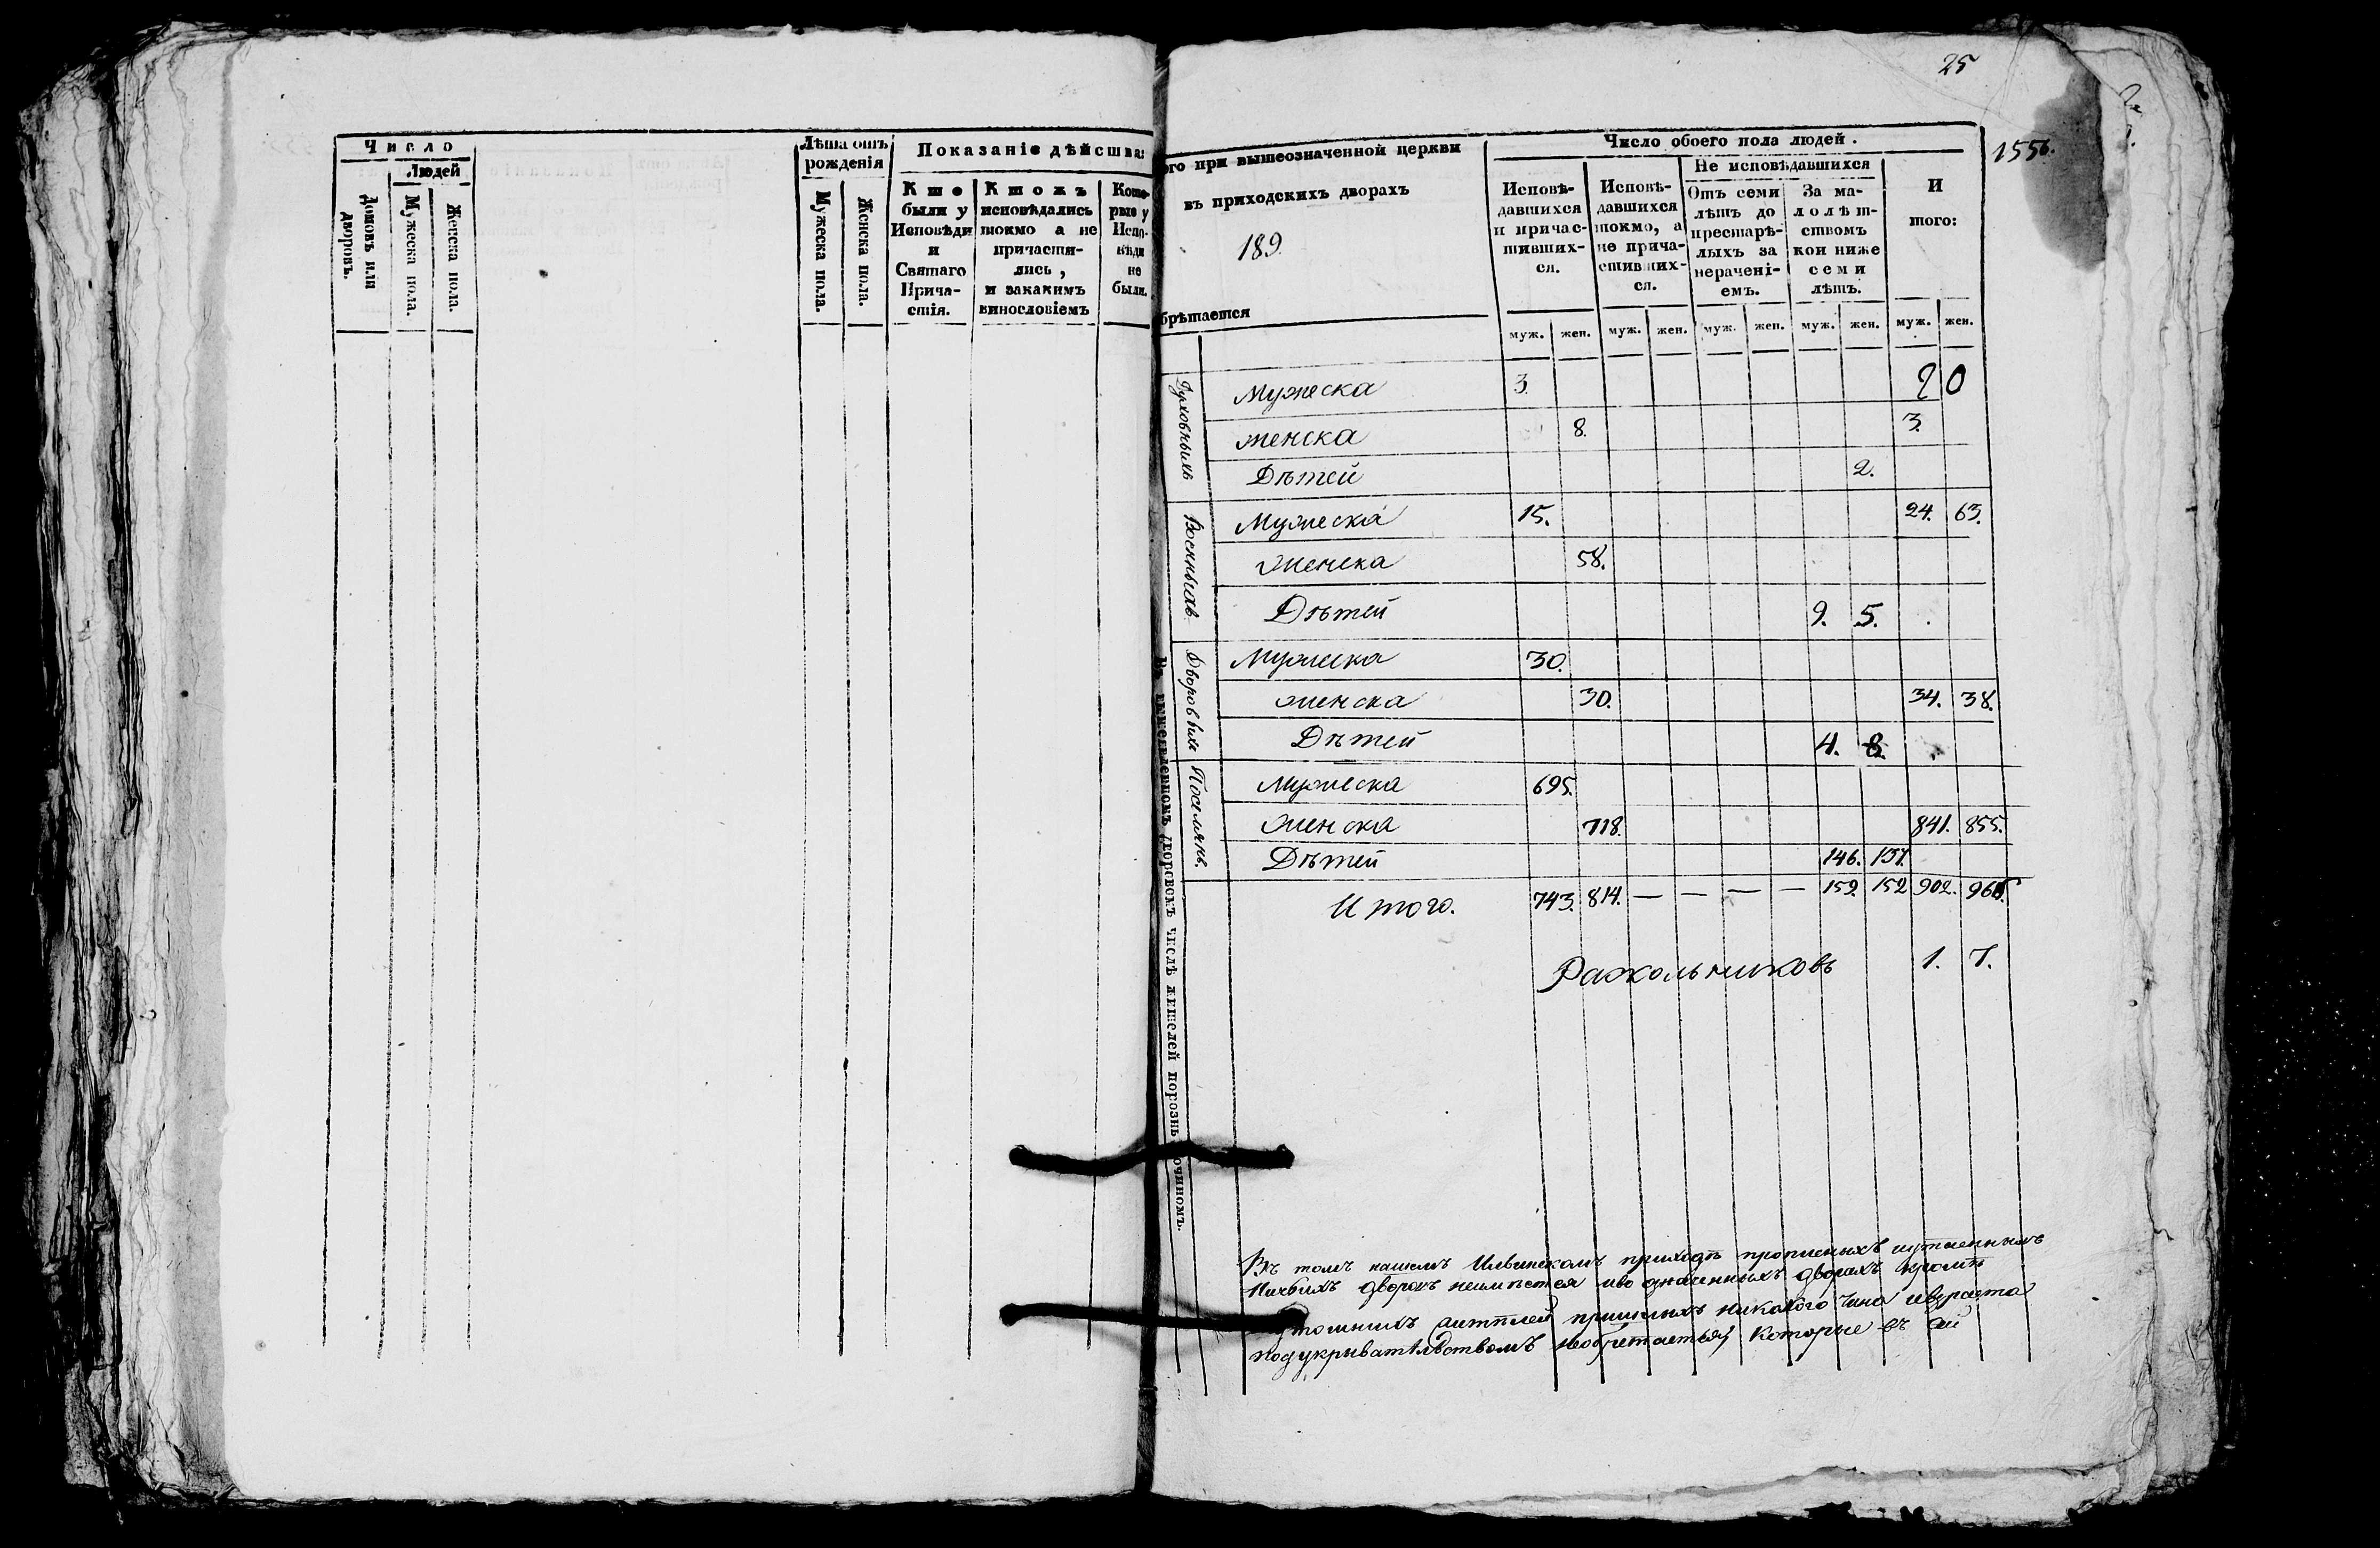 Число
Людей
Домовъ или дворовъ.
Мужеска пола.
Женска пола.
Лѣта отъ рожденія
Мужеска пола.
Женска пола.
Показаніе дѣйства:
Кто были у Исповѣди и Святаго Прича- стія.
Ктожъ исповѣдались токмо а не причасти- лись, и закакимъ винословіемъ
Кото- рые у Испо- вѣди не были.
25
1556.
ого при вышеозначенной церкви
въ приходскихъ дворахъ
189.
брѣтается
Число обоего пола людей.
Исповѣ- давшихся и причас- тивших- ся.
Исповѣ- давшихся токмо, а не прича- стивших- ся.
Не исповѣдавшихся
Отъ семи лѣтъ до престарѣ- лыхъ за нерачені- емъ.
За ма- лолѣт- ствомъ кои ниже семи лѣтъ.
И того:
муж. жен. муж. жен. муж. жен. муж. жен. муж. жен.
Духовныхъ
Мужеска 3.
женска 8. 3.
Дѣтей 2.
Военныхъ
Мужеска 15. 24. 63.
Женска 58.
Дѣтей 9. 5.
Дворовыхъ
Мужеска 30.
женска 30. 34. 38.
Дѣтей 4. 8.
Поселянъ.
Мужеска 695.
Женска 718. 841. 855.
Дѣтей 146. 137.
Итого. 743. 814. — — — — 159. 152 902. 966.
Раскольниковъ 1. 7.
дворовомъ числѣ жителей порознь
Въ томъ нашемъ приходѣ
дворовъ неимѣется дворахъ кромѣ
никакого чина
подукрывательствомъ необретается, которые въ